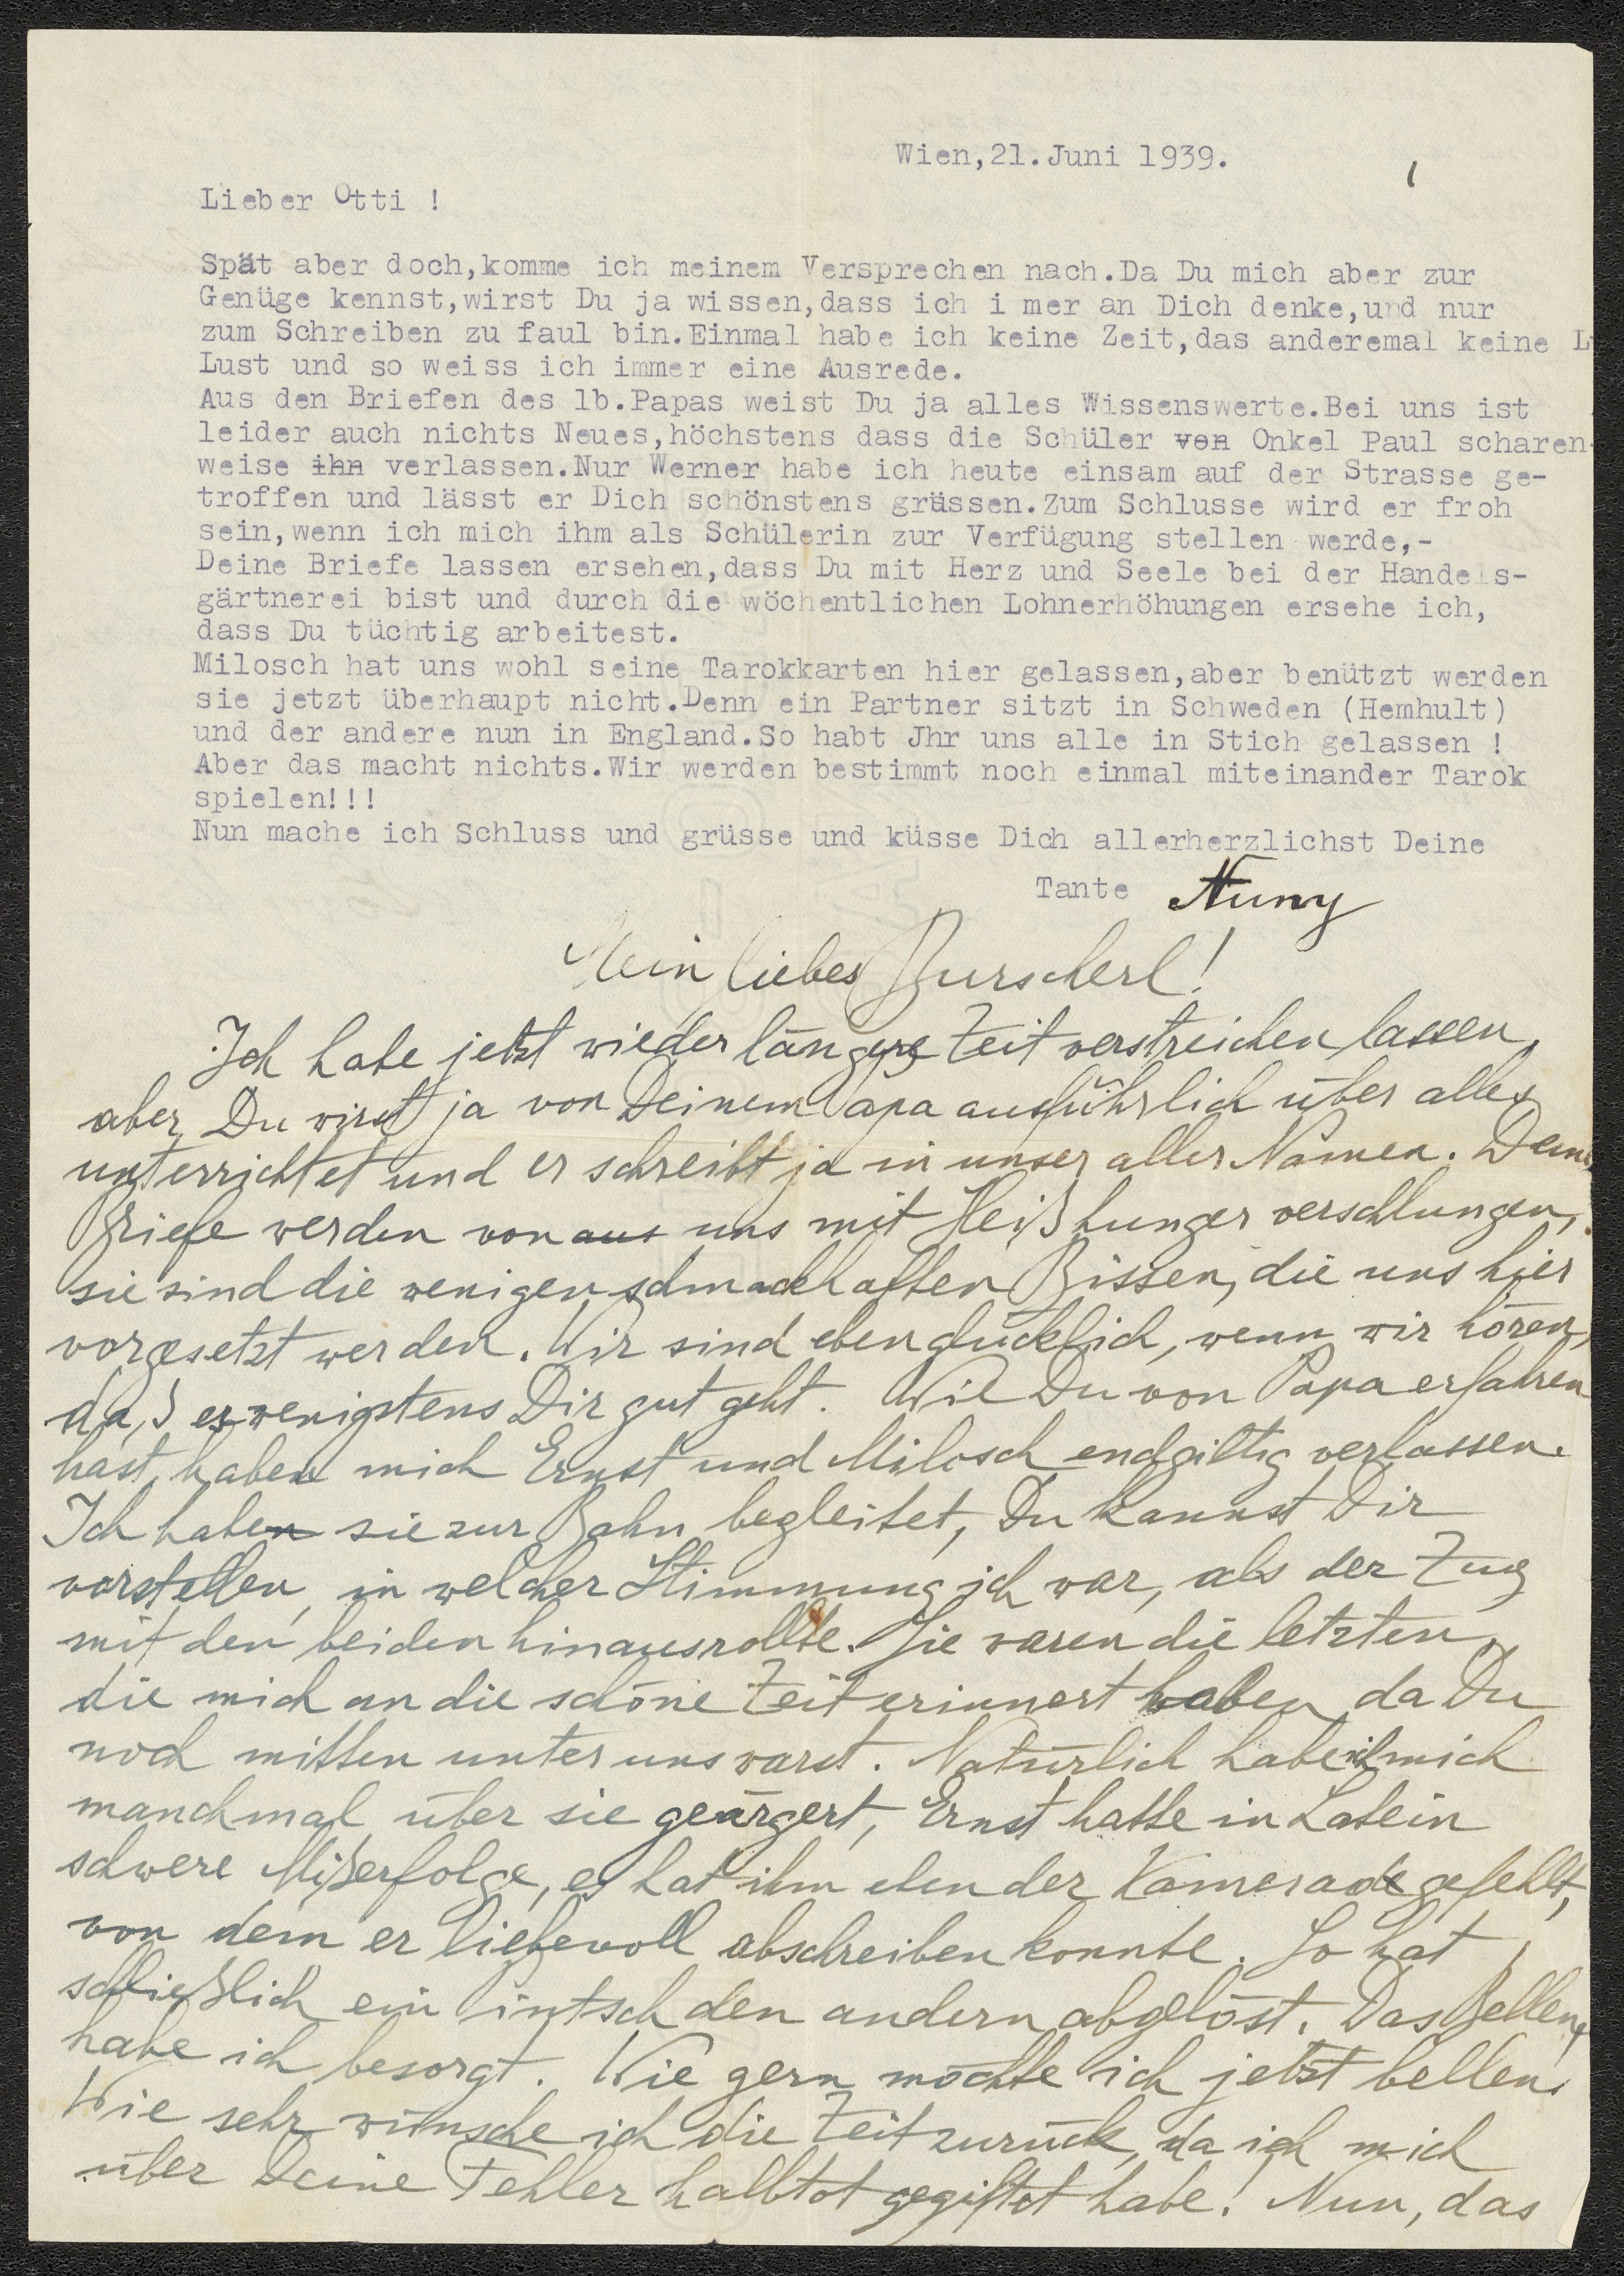 Wien,21.Juni 1939.
Lieber Otti !
Spät aber doch,komme ich meinem Versprechen nach.Da Du mich aber zur
Genüge kennst,wirst Du ja wissen,dass ich i mer an Dich denke,und nur
zum Schreiben zu faul bin.Einmal habe ich keine Zeit,das anderemal keine L
Lust und so weiss ich immer eine Ausrede.
Aus den Briefen des lb.Papas weist Du ja alles Wissenswerte.Bei uns ist
leider auch nichts Neues,höchstens dass die Schüler von Onkel Paul scharen-
weise ihn verlassen.Nur Werner habe ich heute einsam auf der Strasse ge-
troffen und lässt er Dich schönstens grüssen.Zum Schlusse wird er froh
sein,wenn ich mich ihm als Schülerin zur Verfügung stellen werde,-
Deine Briefe lassen ersehen,dass Du mit Herz und Seele bei der Handels-
gärtnerei bist und durch die wöchentlichen Lohnerhöhungen ersehe ich,
dass Du tüchtig arbeitest.
Milosch hat uns wohl seine Tarokkarten hier gelassen,aber benützt werden
sie jetzt überhaupt nicht.Denn ein Partner sitzt in Schweden (Hemhult)
und der andere nun in England.So habt Jhr uns alle in Stich gelassen !
Aber das macht nichts.Wir werden bestimmt noch einmal miteinander Tarok
spielen!!!
Nun mache ich Schluss und grüsse und küsse Dich allerherzlichst Deine
Tante Nuny
Mein liebes Burscherl!
Ich habe jetzt wieder längere Zeit verstreichen lassen,
aber Du wirst ja von Deinem Papa ausführlich über alles
unterrichtet und er schreibt ja in unser aller Namen. Deine
Briefe werden von aus uns mit Heißhunger verschlungen,
sie sind die wenigen schmackhaften Bissen, die uns hier
vorgesetzt werden. Wir sind eben glücklich, wenn wir hören,
daß es wenigstens Dir gut geht. Wie Du von Papa erfahren
hast, haben mich Ernst und Milosch endgiltig verlassen.
Ich haben sie zur Bahn begleitet, Du kannst Dir
vorstellen, in welcher Stimmung ich war, als der Zug
mit den beiden hinausrollte. Sie waren die letzten,
die mich an die schöne Zeit erinnert haben, da Du
noch mitten unter uns warst. Natürlich habe ich mich
manchmal über sie geärgert, Ernst hatte in Latein
schwere Mißerfolge, es hat ihm eben der Kamerad gefehlt,
von dem er liebevoll abschreiben konnte. So hat
schließlich ein Pintsch den andern abgelöst. Das Bellen
habe ich besorgt. Wie gern möchte ich jetzt bellen.
Wie sehr wünsche ich die Zeit zurück, da ich mich
über Deine Fehler halbtot gegiftet habe! Nun, das